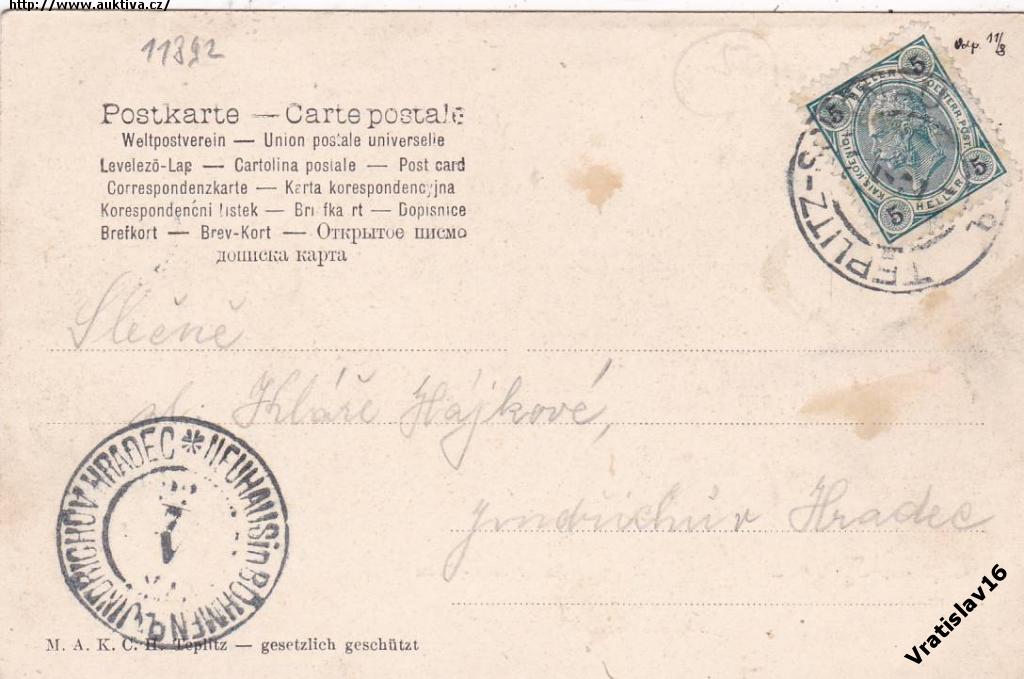 http://www.auktiva.cz/
11392
Odp. 11/8
Postkarte — Carte postale
Weltpostverein — Union postale universelle
Levelező-Lap — Cartolina postale — Post card
Correspondenzkarte — Karta korespondencyjna
Korespondenční lístek — Briefkaart — Dopisnice
Brefkort — Brev-Kort — Открытое письмо
дописка карта
5 HELLER 5
OESTERR. POST.
5 HELLER 5
KAIS. KOENIGL.
TEPLITZ-S
Slečně
sl. Kláře Hájkové,
Jindřichův Hradec
JINDŘICHŮV HRADEC * NEUHAUS in BÖHMEN
M. A. K. C. H. Teplitz — gesetzlich geschützt
Vratislav16